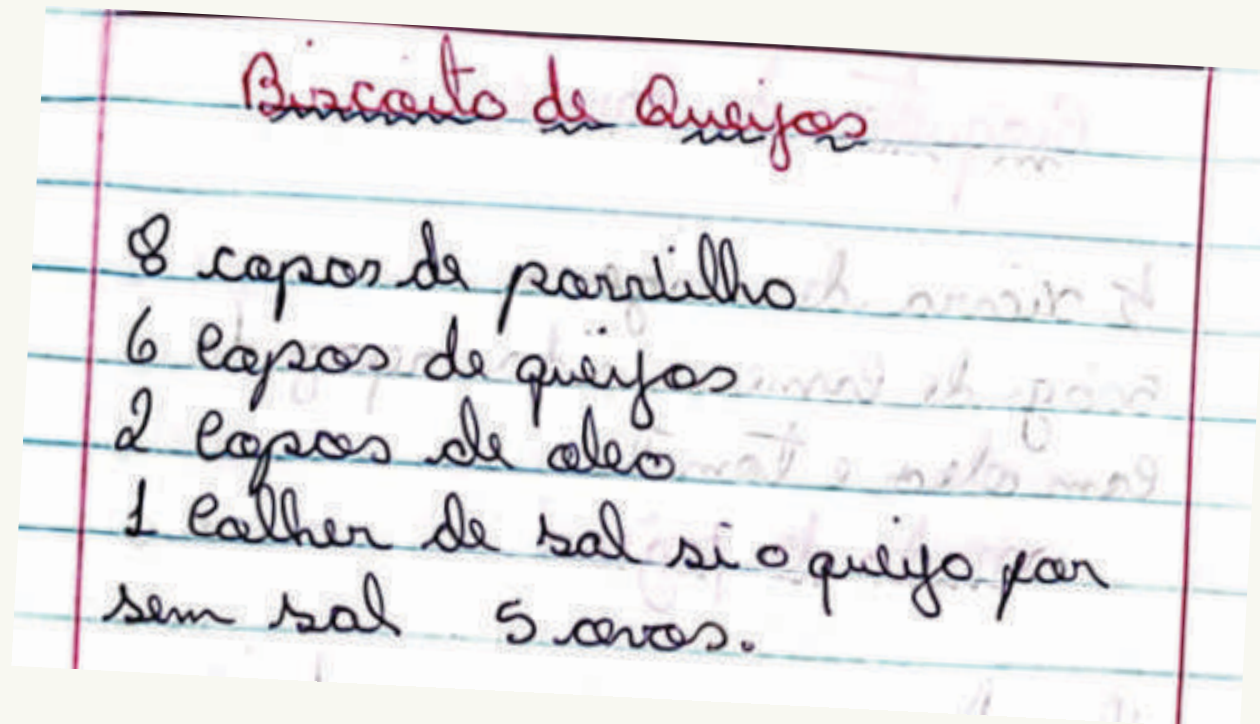 Biscoito de Queijos
8 copos de porvilho
6 Copos de queijos
2 Copos de oleo
1 Colher de sal si o queijo for
sem sal 5 ovos.